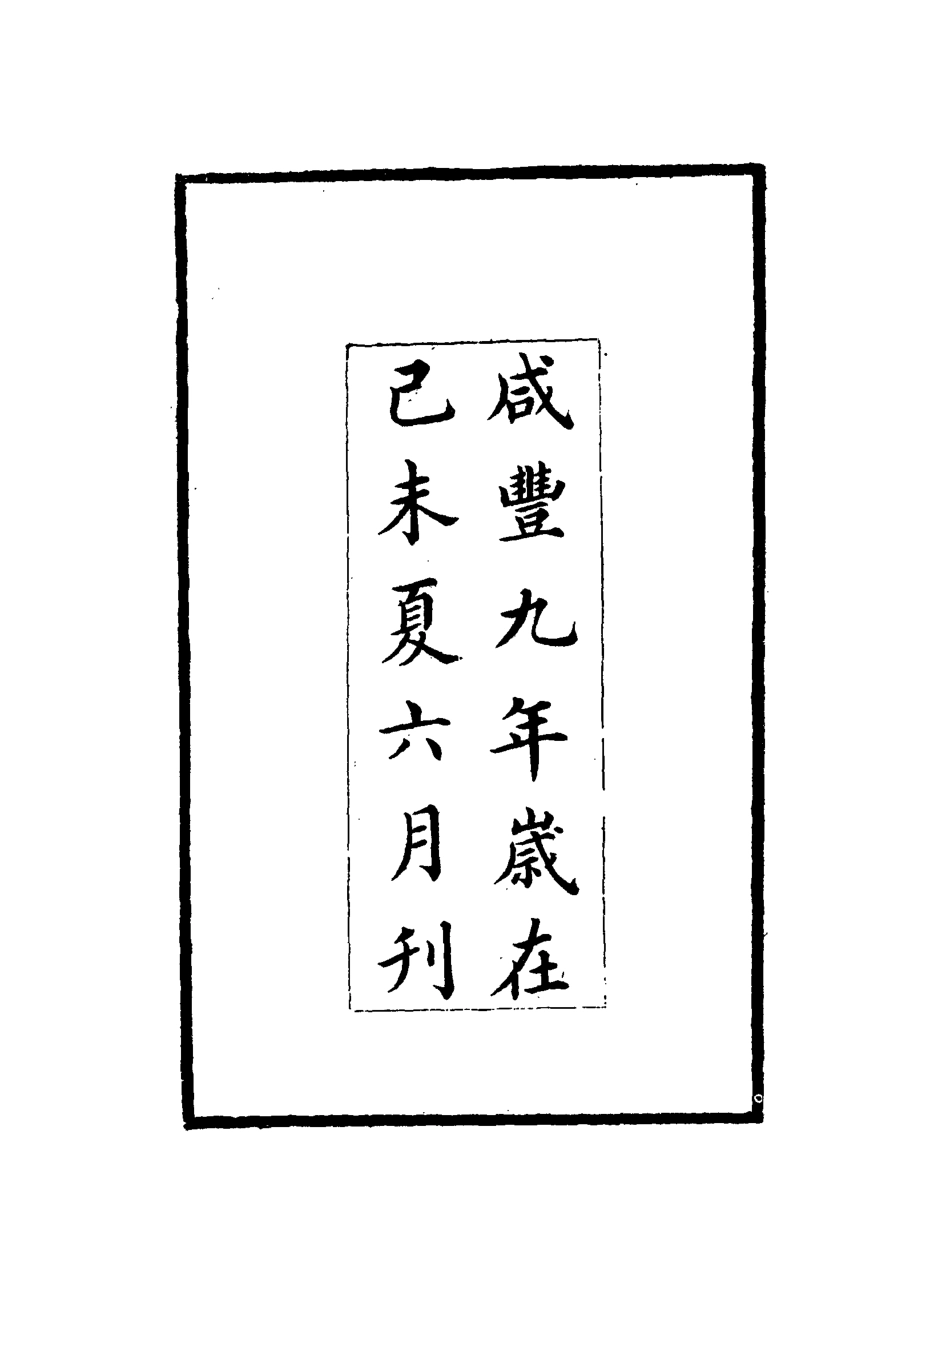 咸豐九年歳在
己未夏六月刊